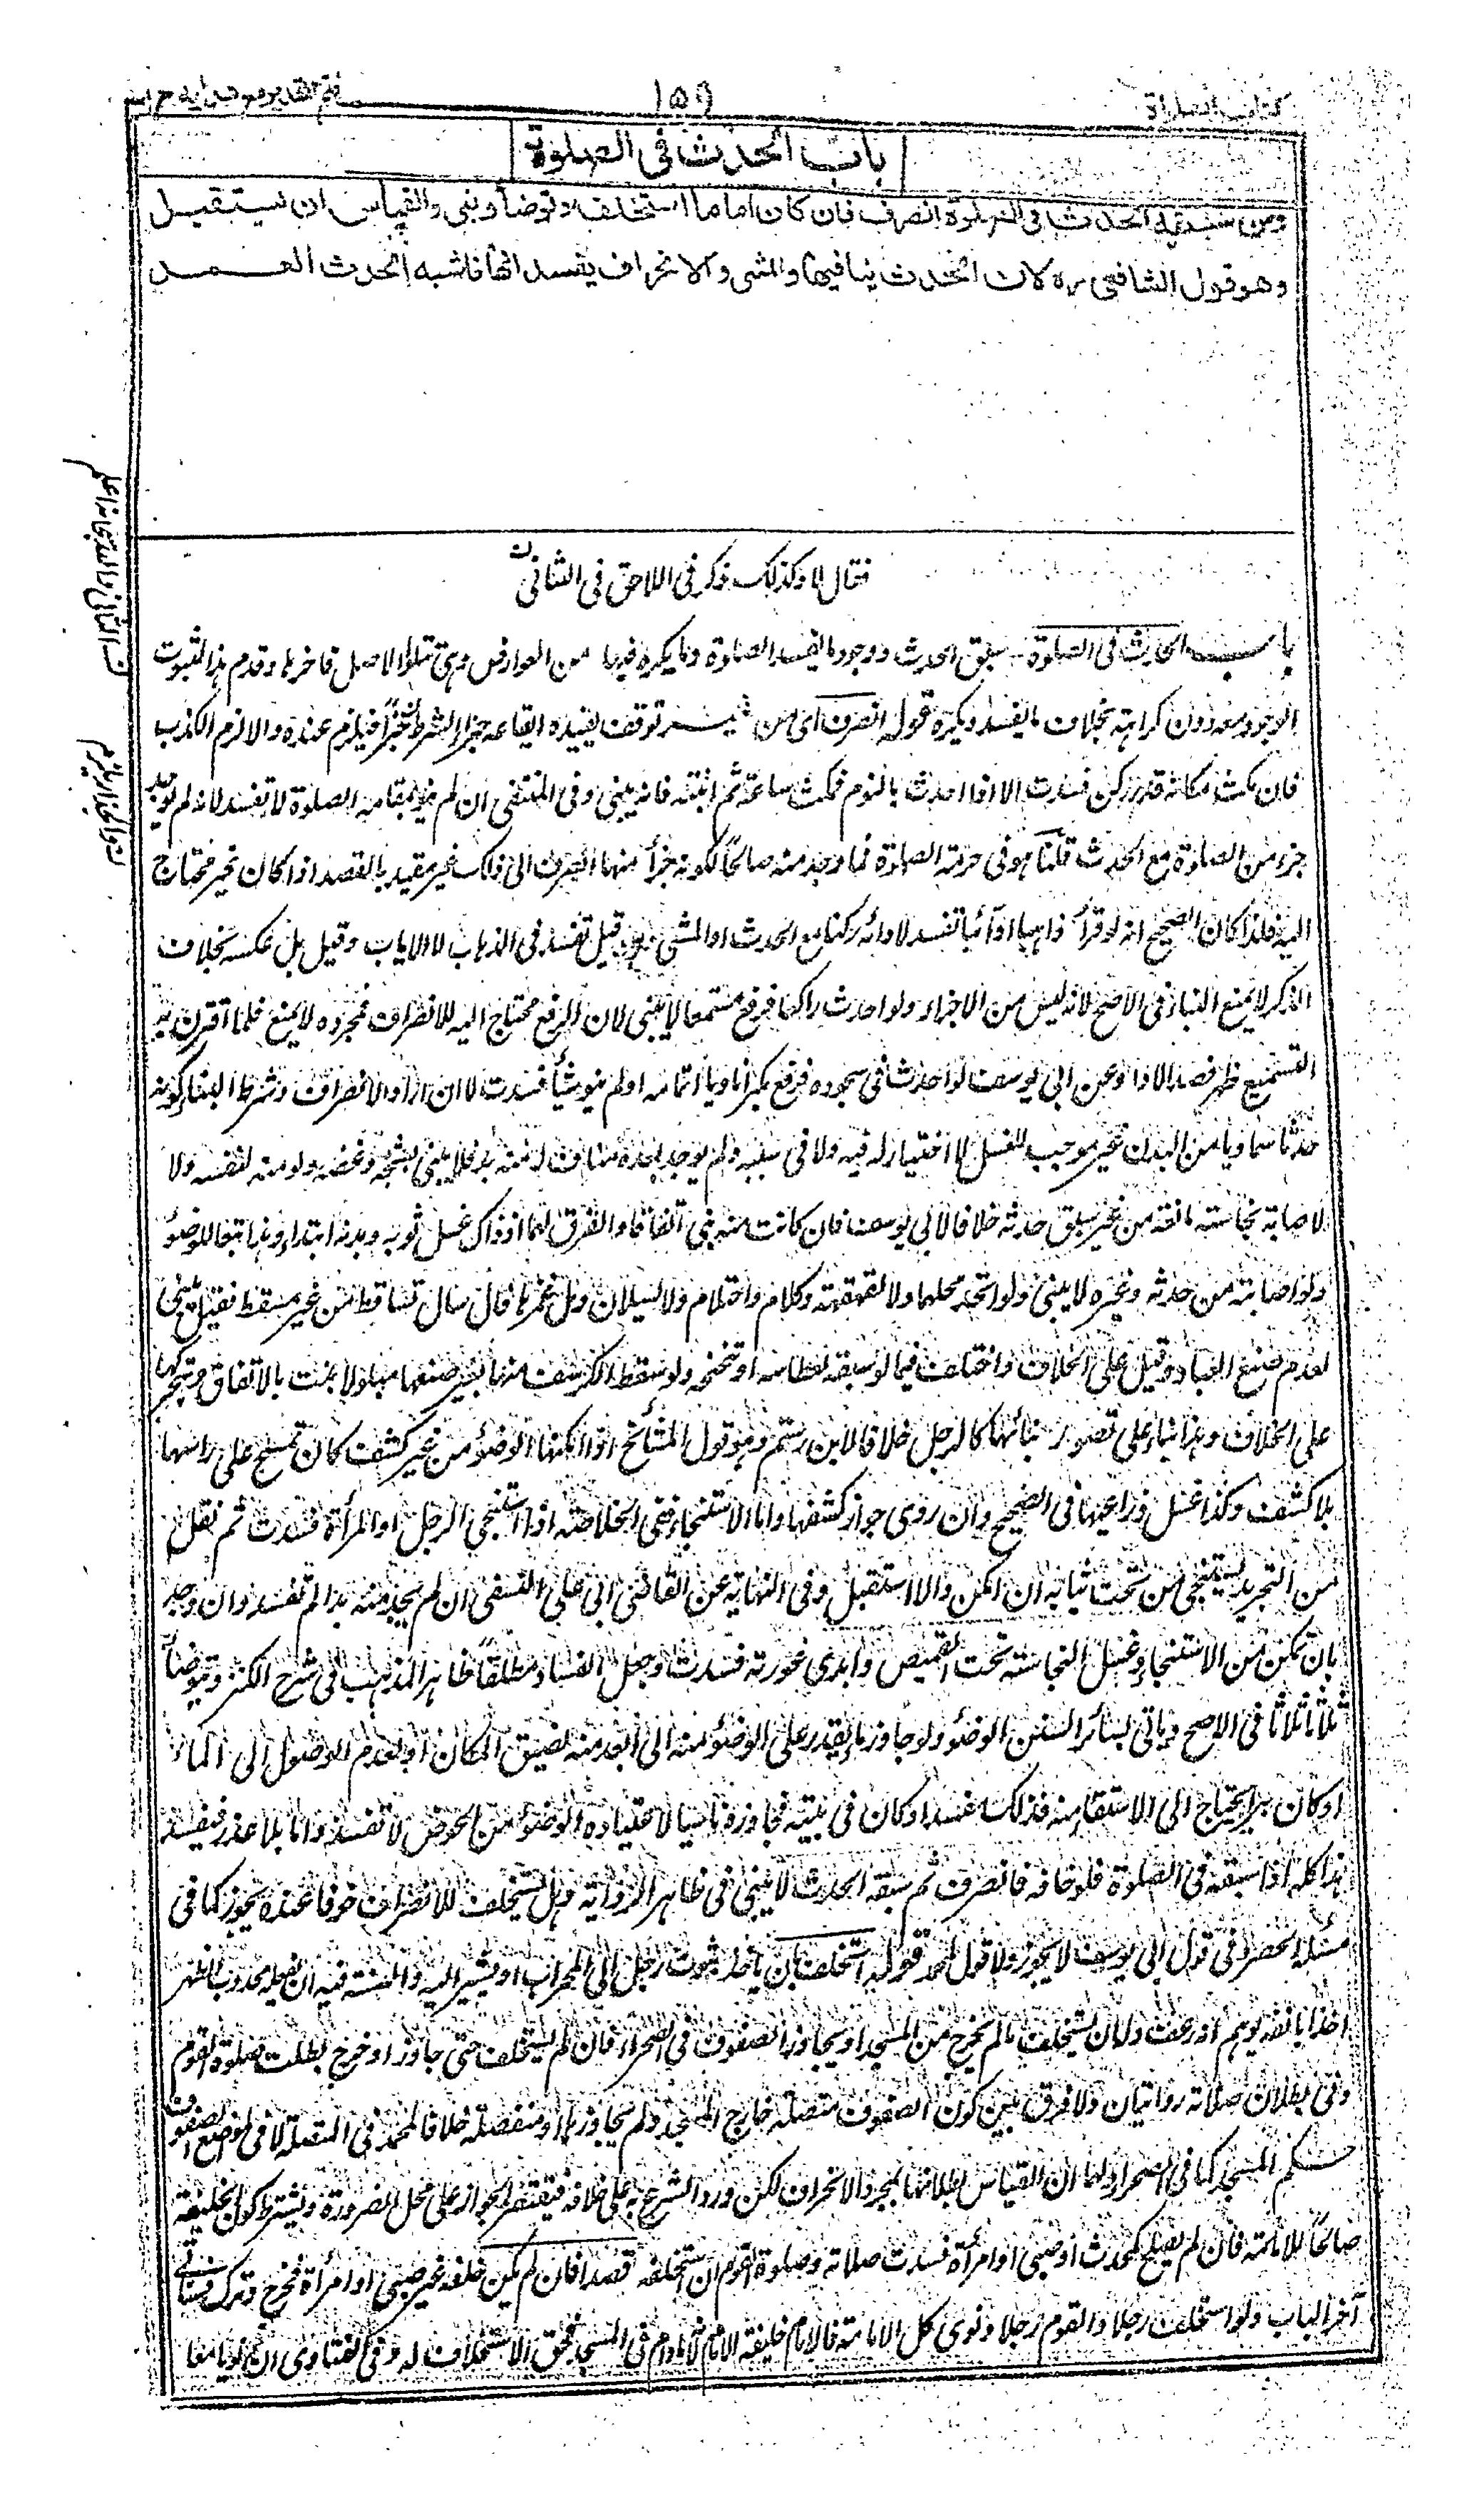 كتاب الصلوة
١٥٩
فتح القدير مع هدايه ج ١
باب الحدث فى الصلوة
ومن سبقه الحدث فى الصلوة انصرف فان كان اماما استخلف وتوضأ وبنى والقياس ان يستقبل
وهو قول الشافعى ره لان الحدث ينافيها والمشى والانحراف يفسد انها فاشبه الحدث العمد
فقال لا وكذلك ذكر فى اللاحق فى الثانى
باب الحدث فى الصلوة سبق الحدث ووجود ما يفسد الصلوة وما يكره فيها من العوارض وهى تتلو الاصل فاخرها وقدم هذا لثبوت
الوجود معه دون كراهته بخلاف ما يفسد ويكره قوله انصرف اى من غير توقف يفيده ايقاعه جزاء الشرط خبرًا فيلزم عنده والا لزم الكذب
فان مكث مكانه قدر ركن فسدت الا اذا احدث بالنوم فمكث ساعة ثم انتبه فانه يبنى وفى المنتقى ان لم ينو بمقامه الصلوة لا تفسد لانه لم يؤد
جزء من الصلوة مع الحدث قلنا هو فى حرمة الصلوة فما وجد منه صالحًا لكونه جزأ منها انصرف الى ذلك غير مقيد بالقصد اذا كان غير محتاج
اليه فلذا كان الصحيح انه لو قرأ ذاهبا او آئبا تفسد لادائه ركنا مع الحدث او المشى وقيل تفسد فى الذهاب لا الاياب وقيل بل عكسه بخلاف
الذكر لا يمنع البناء فى الاصح لانه ليس من الاجزاء ولو احدث راكعا فرفع مستمعا لا يبنى لان الرفع محتاج اليه للانصراف فمجرده لا يمنع فلما اقترن به
التسميع ظهر قصد الاداء وعن ابى يوسف لو احدث فى سجوده فرفع مكبرا ناويا اتمامه او لم ينو شيأ فسدت لا ان اراد الانصراف وشرط البناء كونه
حدثا سماويا من البدن غير موجب للغسل لا اختيار له فيه ولا فى سببه ولم يوجد بعده مناف له منه بد فلا يبنى بشجة وعضه ولو منه لنفسه ولا
لاصابة نجاسة مانعة من غير سبق حدثه خلافا لابى يوسف فان كانت منه بنى اتفاقا والفرق لهما ان ذاك غسل ثوبه وبدنه ابتداء وهذا تبعا للوضوء
ولو اصابته من حدثه وغيره لا يبنى ولو اتحد محلهما ولا لقهقهة وكلام واحتلام ولا لسيلان دمل غمزها فان سال تساقط من غير مسقط فقيل يبنى
لعدم صنع العباد وقيل على الخلاف واختلف فيما لو سبقه لعطاسه او تنحنحه ولو سقط الكرسف منها بغير صنعها مبلولا بنت بالاتفاق وبتحريكها
على الخلاف وهذا بناء على تصور بنائها كالرجل خلافا لابن رستم وهو قول المشائخ اذا امكنها الوضوء من غير كشف كان تمسح على راسها
بلا كشف وكذا غسل ذراعيها فى الصحيح وان روى جواز كشفها واما الاستنجاء ففى الخلاصة اذا استنجى الرجل او المرأة فسدت ثم نقل
من التجريد يستنجى من تحت ثيابه ان امكن والا استقبل وفى النهاية عن القاضى ابى على النسفى ان لم يجد منه بدا لم تفسد وان وجد
بان تمكن من الاستنجاء وغسل النجاسة تحت القميص وابدى عورته فسدت وجعل الفساد مطلقًا ظاهر المذهب فى شرح الكنز ويتوضأ
ثلاثا ثلاثا فى الاصح وياتى بسائر السنن الوضوء ولو جاوز ماء يقدر على الوضوء منه الى ابعد منه لضيق المكان او لعدم الوصول الى الماء
او كان بئرا يحتاج الى الاستقاء منه فذلك مفسد او كان فى بيته فجاوزه ناسيا لاعتياده الوضوء من الحوض لا تفسد واما بلا عذر فيفسد
هذا كله اذا سبقه فى الصلوة فلو خافه فانصرف ثم سبقه الحدث لا يبنى فى ظاهر الرواية وهل يستخلف للانصراف خوفا عنده يجوز كما فى
مسئلة الحصر فى قول ابى يوسف لا يجوز ولا قول لمحمد قوله استخلف بان ياخذ بثوب رجل الى المحراب او يشير اليه والسنة فيه ان يفعله محدودب الظهر
اخذا بانفه يوهم انه رعف وله ان يستخلف ما لم يخرج من المسجد او يجاوز الصفوف فى الصحراء فان لم يستخلف حتى جاوز او خرج بطلت صلوة القوم
وفى بطلان صلاته روايتان ولا فرق بين كون الصفوف متصلة خارج المسجد ولم يجاوزها او منفصلة خلافا لمحمد فى المتصلة لان لمواضع الصفوف
حكم المسجد كما فى الصحراء ولهما ان القياس بطلانها بمجرد الانحراف لكن ورد الشرع به على خلافه فيقتصر الجواز على محل الضرورة ويشترط كون الخليفة
صالحًا للامامة فان لم يصلح كمحدث او صبى او امرأة فسدت صلاته وصلوة القوم ان استخلفه قصدا فان لم يكن خلفه غير صبى او امرأة فخرج وترك فسياتى
آخر الباب ولو استخلف رجلا والقوم رجلا ونوى كل الامامة فالامام خليفة الامام لانه ما دام فى المسجد فحق الاستخلاف له وفى الفتاوى ان نويا معا